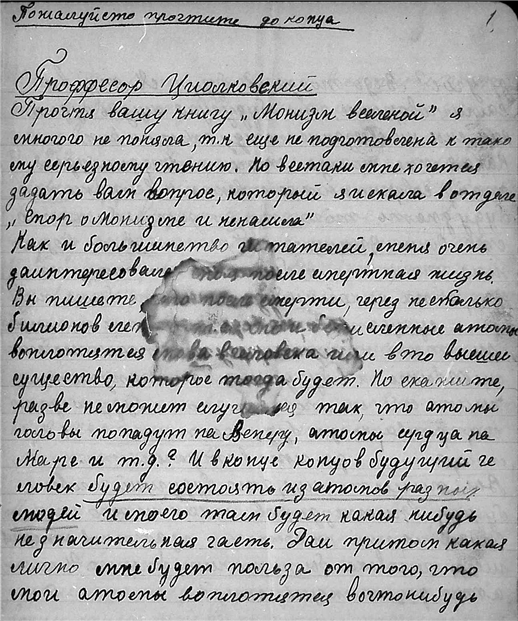 Пожалуйсто прочтите до конца
1.
Проффесор Циолковский
Прочтя вашу книгу „Монизм вселеной" я
многого не поняла, т.к еще не подготовлена к тако
му серьезному чтению. Но всетаки мне хочется
задать вам вопрос, который я искала в отделе
„Спор о Монизме и ненашла"
Как и большинство читателей, меня очень
заинтересовала после смертная жизнь.
Вы пишете после смерти, через несколько
билионов лет атомы
воплотятся снова вчеловека или в то высшее
существо, которое тогда будет. Но скажите,
разве неможит случится так, что атомы
головы попадут на Венеру, атомы сердца на
Марс и т.д.? И в конце концов будущий че
ловек будет состоять из атомов разных
людей и моего там будет какая нибудь
незначительная часть. Даи притом какая
лично мне будет польза от того, что
мои атомы воплотятся вочтонибудь